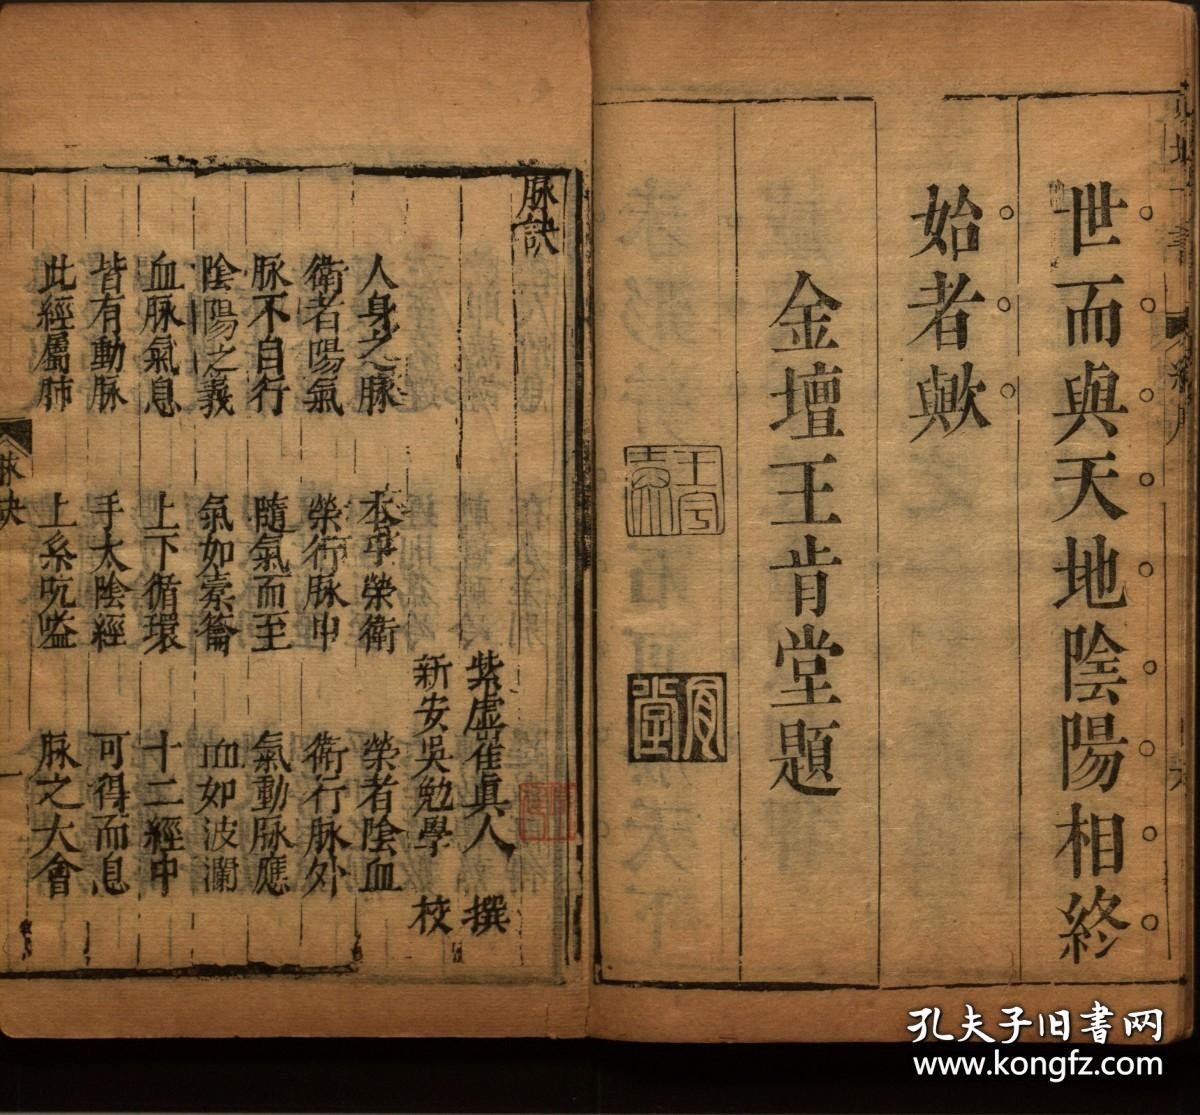 世而與天地陰陽相終
始者歟
金壇王肯堂題
脉訣
紫虛崔眞人 撰
新安吳勉學 校
人身之脉 本乎榮衛 榮者陰血
衛者陽氣 榮行脉中 衛行脉外
脉不自行 隨氣而至 氣動脉應
陰陽之義 氣如橐籥 血如波瀾
血脉氣息 上下循環 十二經中
皆有動脉 手太陰經 可得而息
此經屬肺 上系吭嗌 脉之大會
脉訣
一
孔夫子旧书网
www.kongfz.com